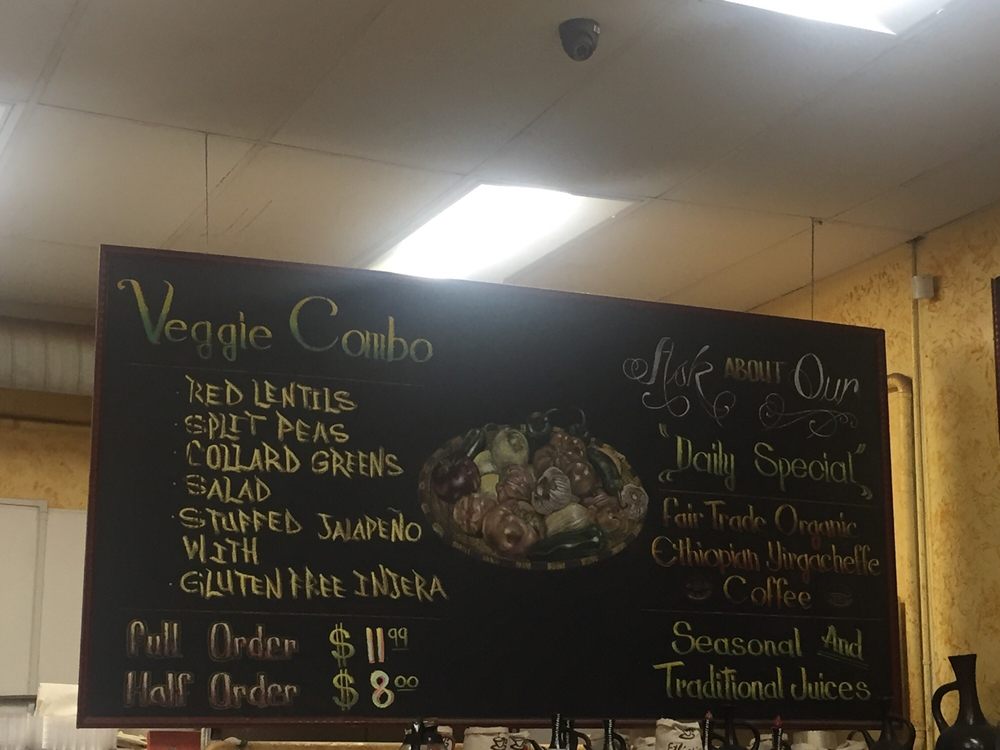 Veggie Combo
RED LENTILS
SPLIT PEAS
COLLARD GREENS
SALAD
STUFFED JALAPEÑO
WITH
GLUTEN FREE INJERA
Full Order $11.99
Half Order $8.00
Ask ABOUT Our
"Daily Special"
Fair Trade Organic
Ethiopian Yirgacheffe
Coffee
Seasonal And
Traditional Juices